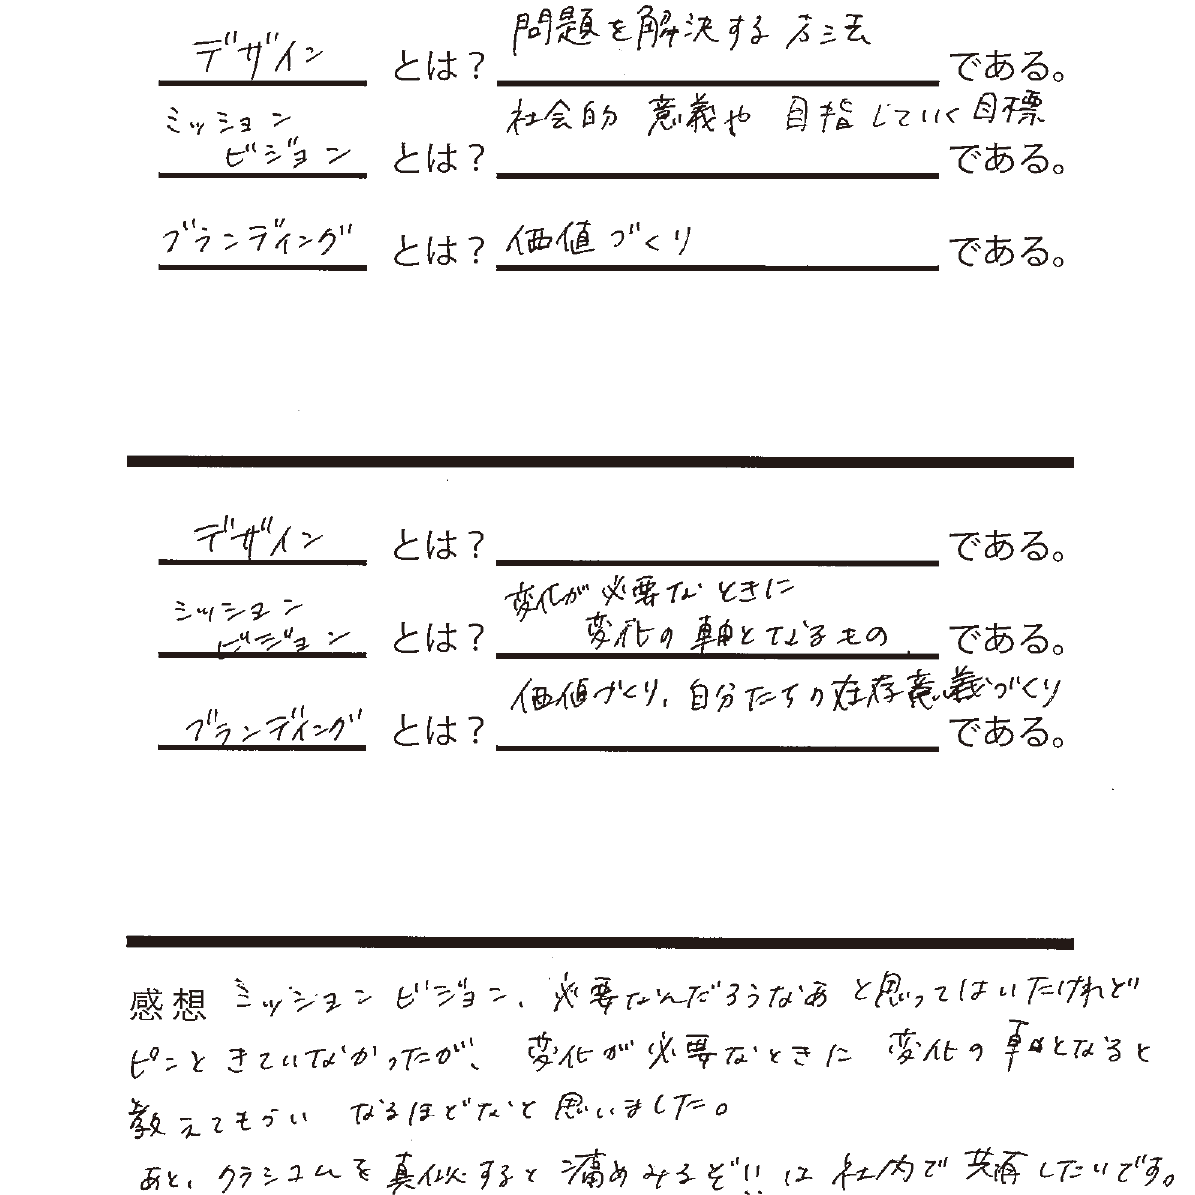 デザイン とは? 問題を解決する方法 である。
ミッション
ビジョン とは? 社会的意義や目指していく目標 である。
ブランディング とは? 価値づくり である。
デザイン とは? である。
ミッション
ビジョン とは? 変化が必要なときに
変化の軸となるもの である。
ブランディング とは? 価値づくり、自分たちの存在意義づくり である。
感想 ミッションビジョン、必要なんだろうなあと思ってはいたけれど
ピンときていなかったが、変化が必要なときに変化の軸となると
教えてもらいなるほどなと思いました。
あと、クラシコムを真似すると痛めみるぞ!!は社内で共有したいです。